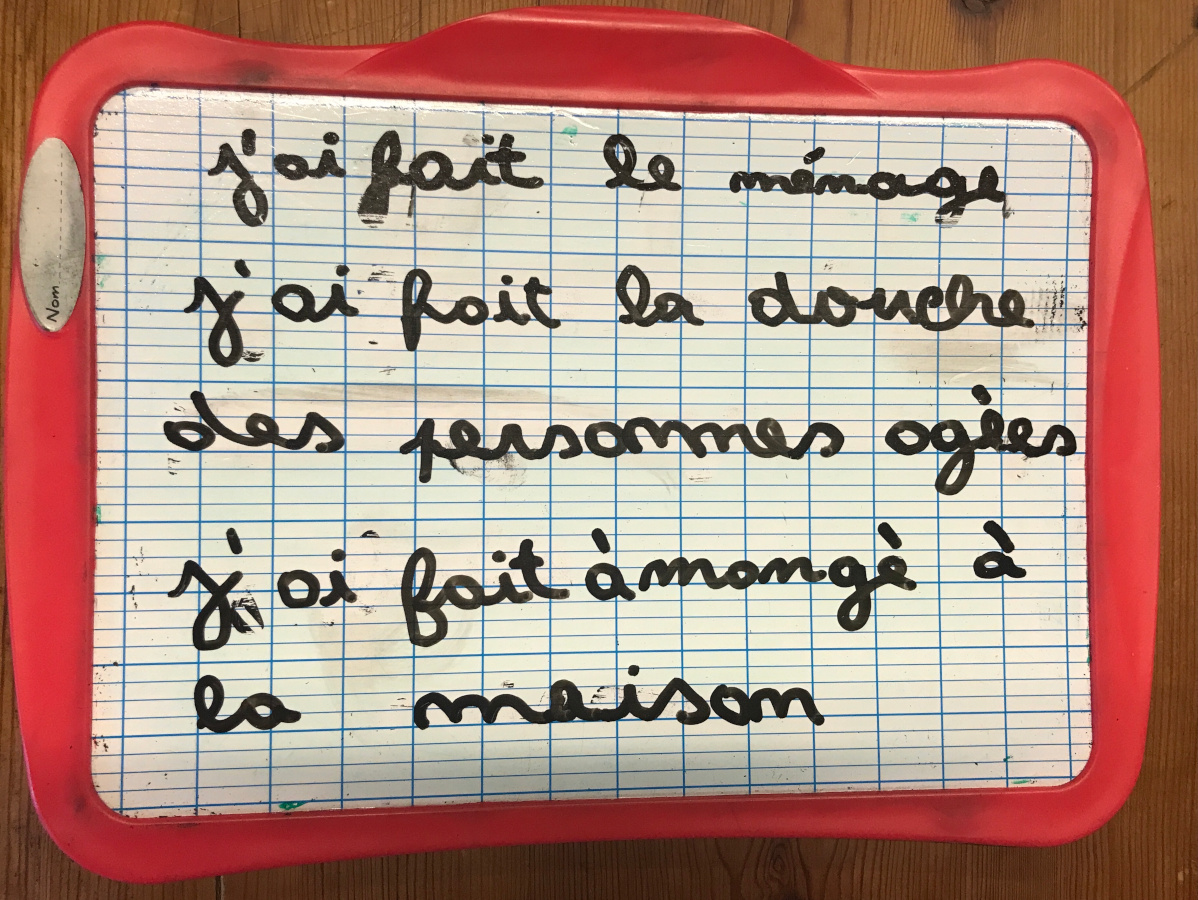 j'ai fait le ménage
j'ai fait la douche
des personnes agèes
j'ai fait àmangè à
la maison
Nom